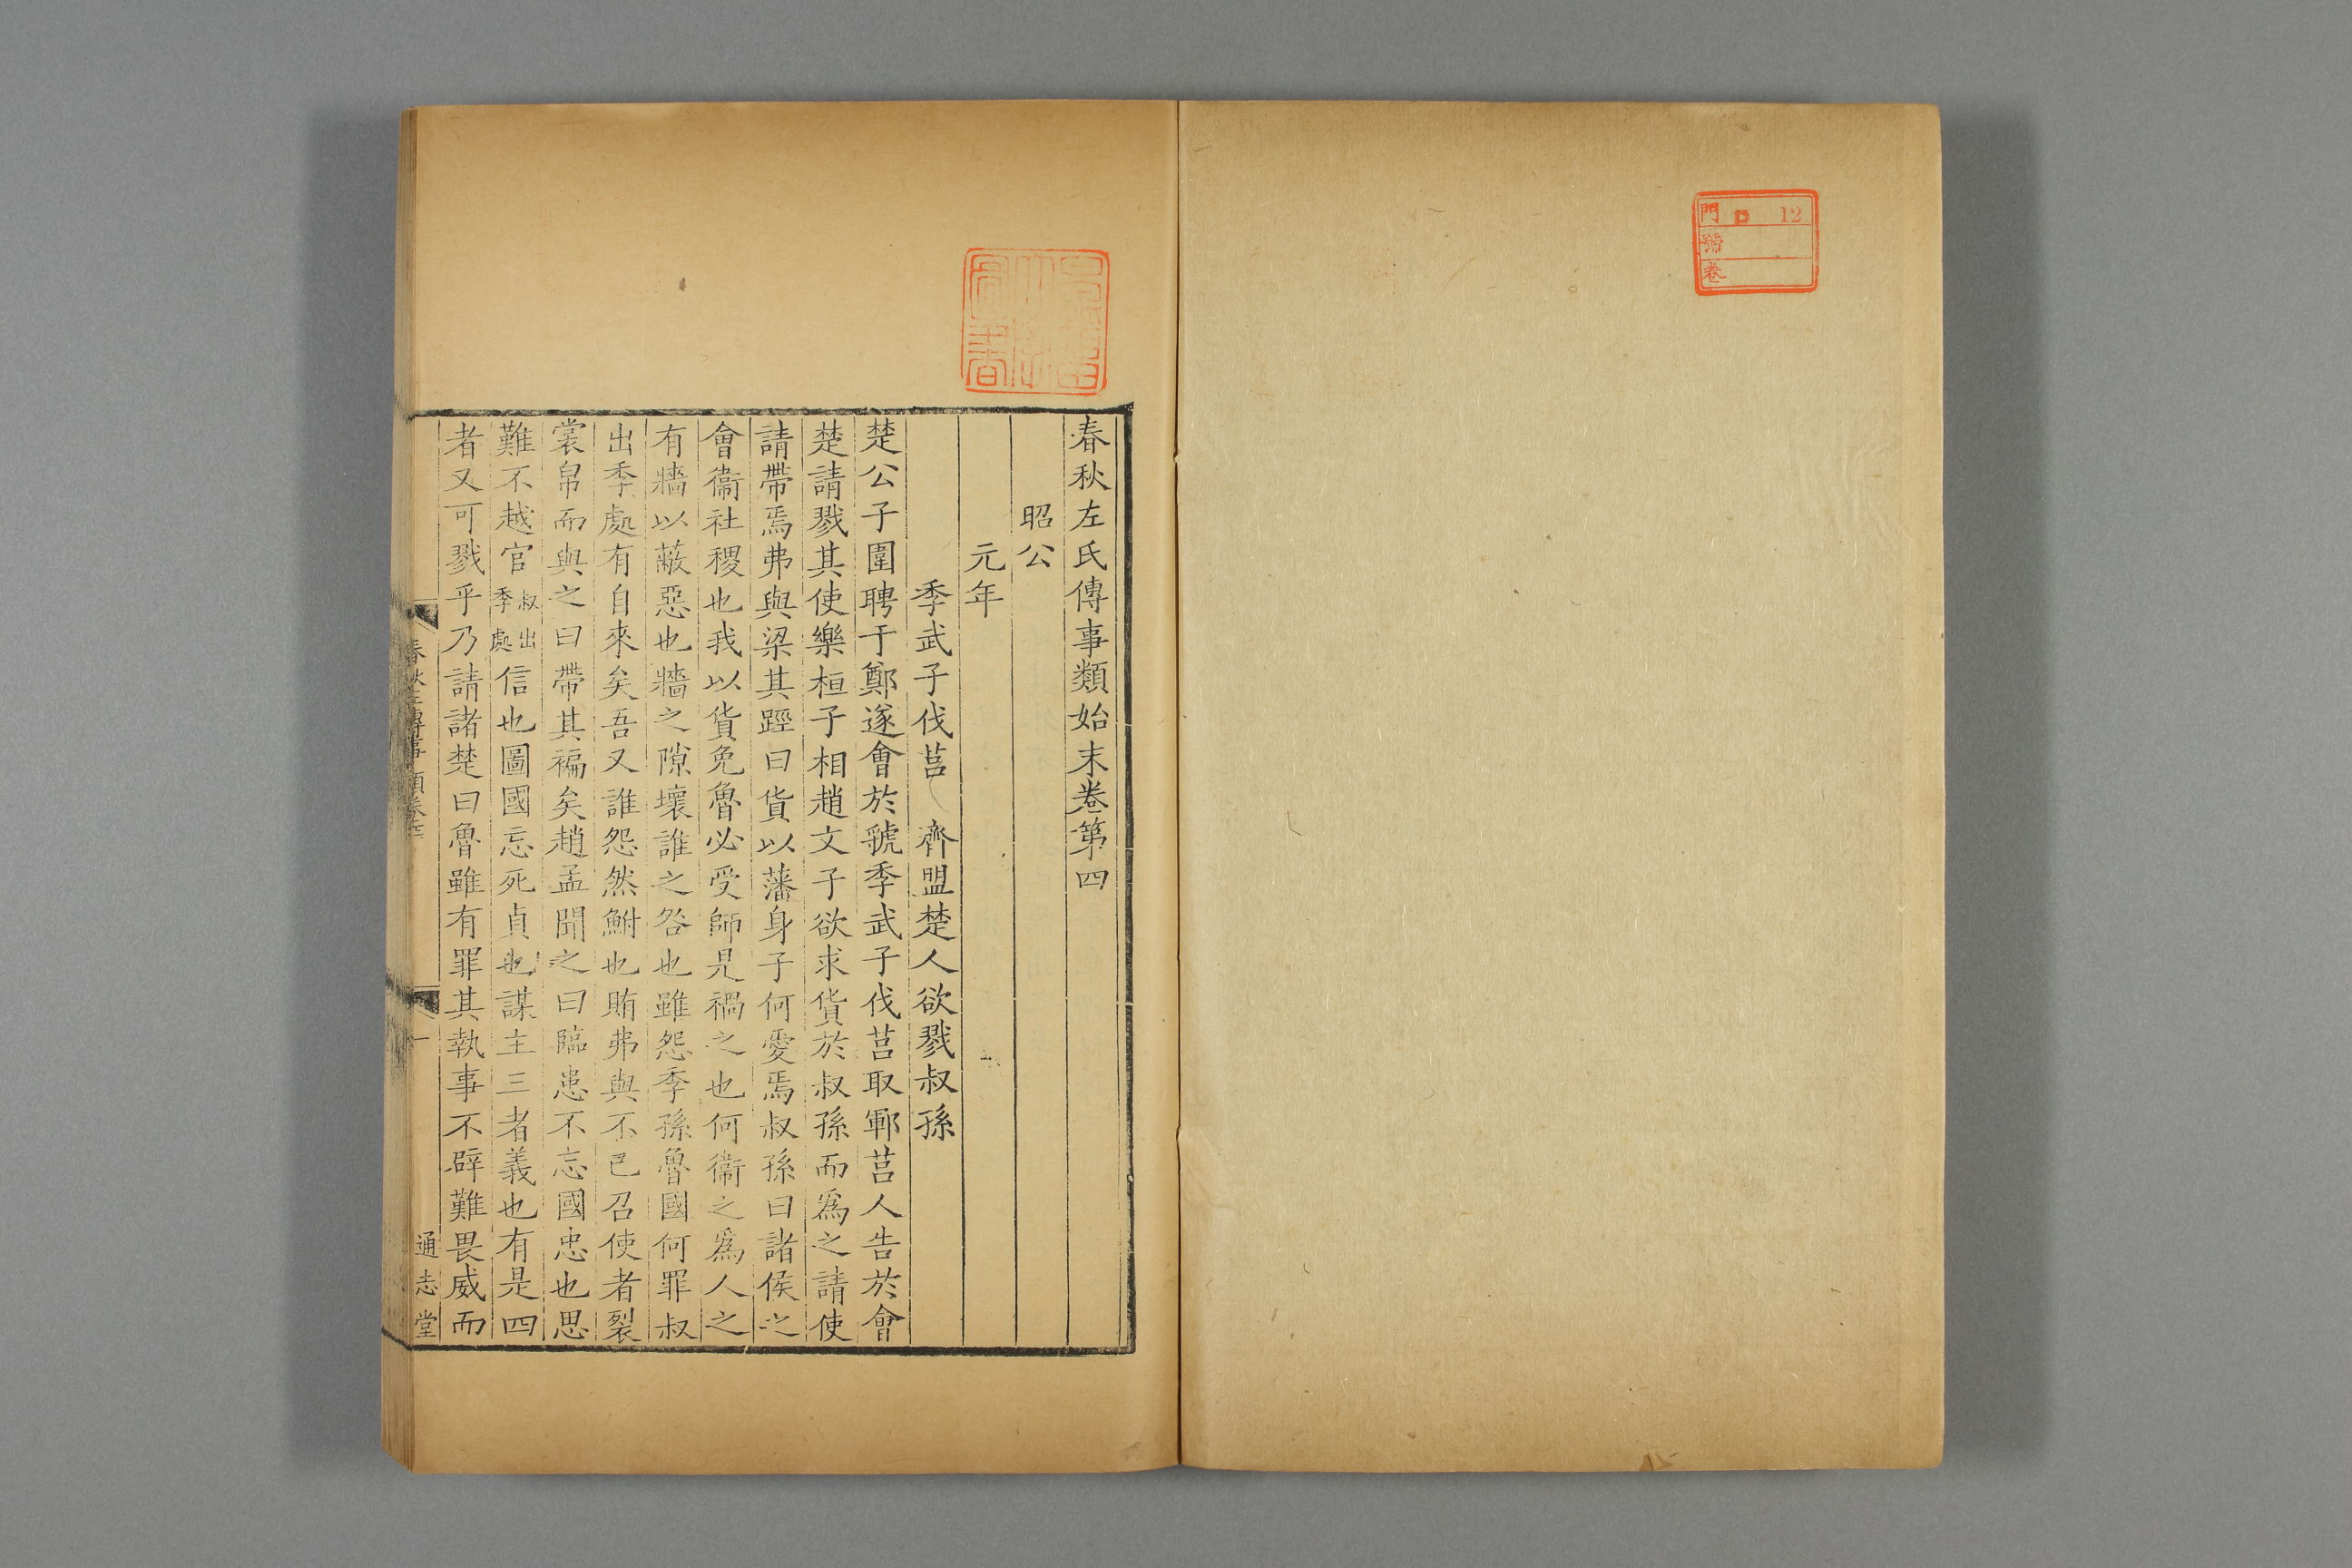 門 12
號
卷
春秋左氏傳事類始末卷第四
昭公
元年
季武子伐莒 齊盟楚人欲戮叔孫
楚公子圍聘于鄭遂會於虢季武子伐莒取鄆莒人告於會
楚請戮其使樂桓子相趙文子欲求貨於叔孫而爲之請使
請帶焉弗與梁其踁曰貨以藩身子何愛焉叔孫曰諸侯之
會衞社稷也我以貨免魯必受師是禍之也何衞之爲人之
有牆以蔽惡也牆之隙壞誰之咎也雖怨季孫魯國何罪叔
出季處有自來矣吾又誰怨然鮒也賄弗與不已召使者裂
裳帛而與之曰帶其褊矣趙孟聞之曰臨患不忘國忠也思
難不越官叔出季處信也圖國忘死貞也謀主三者義也有是四
者又可戮乎乃請諸楚曰魯雖有罪其執事不辟難畏威而
通志堂